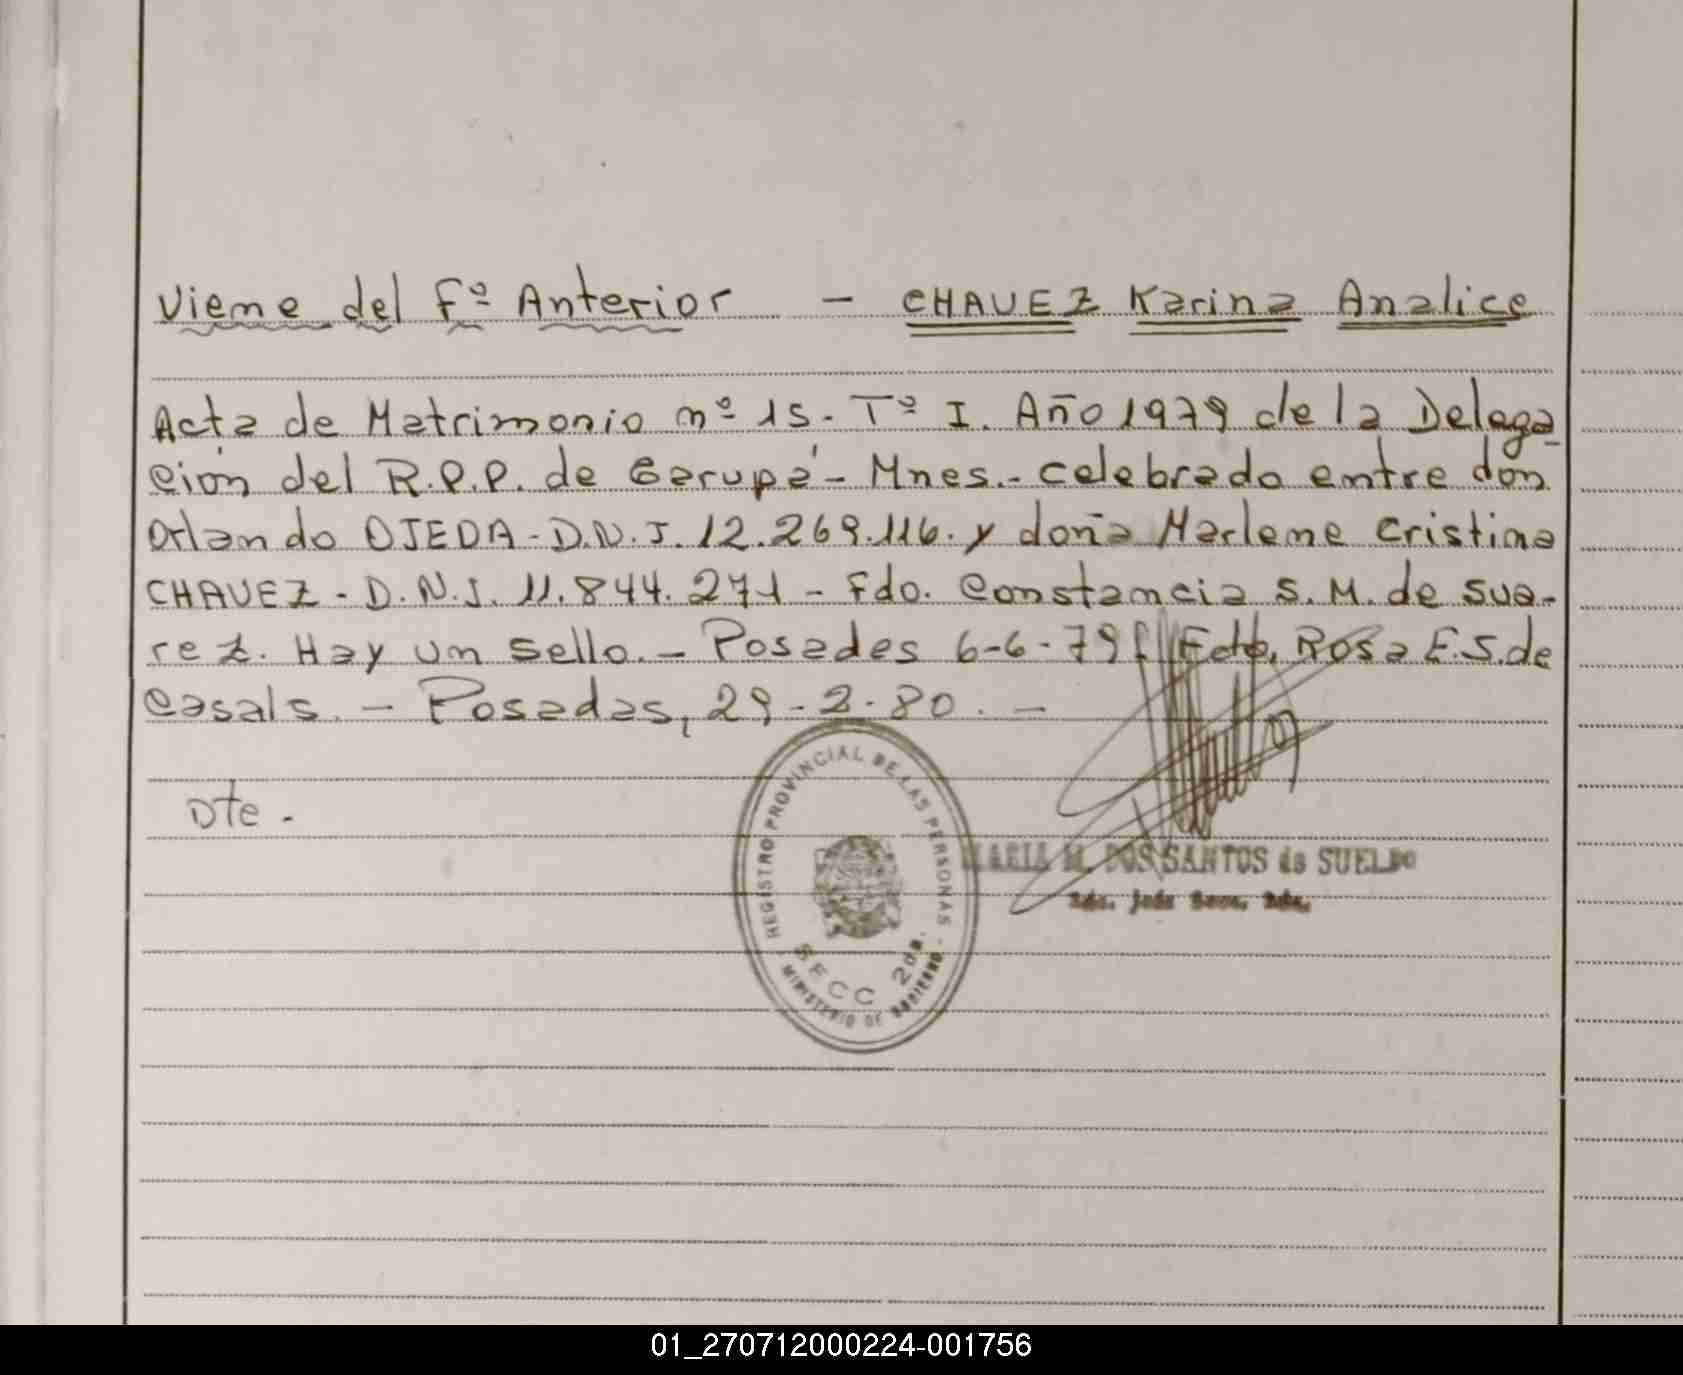 Viene del Fº Anterior - CHAVEZ Karina Analice
Acta de Matrimonio nº 15. Tº I. Año 1979 de la Delega
ción del R.P.P. de Garupá - Mnes.- celebrado entre don
Orlando OJEDA - D.N.I. 12.269.116. y doña Marlene Cristina
CHAVEZ - D.N.I. 11.844.271 - Fdo. Constancia S. M. de Sua-
rez. Hay un sello. - Posadas 6-6-79 Fdo. Rosa E.S. de
Casals. - Posadas, 29-2-80. -
Dte.
REGISTRO PROVINCIAL DE LAS PERSONAS
SECC 2da.
MINISTERIO DE GOBIERNO
MARIA M. DOS SANTOS de SUELDO
01_270712000224-001756